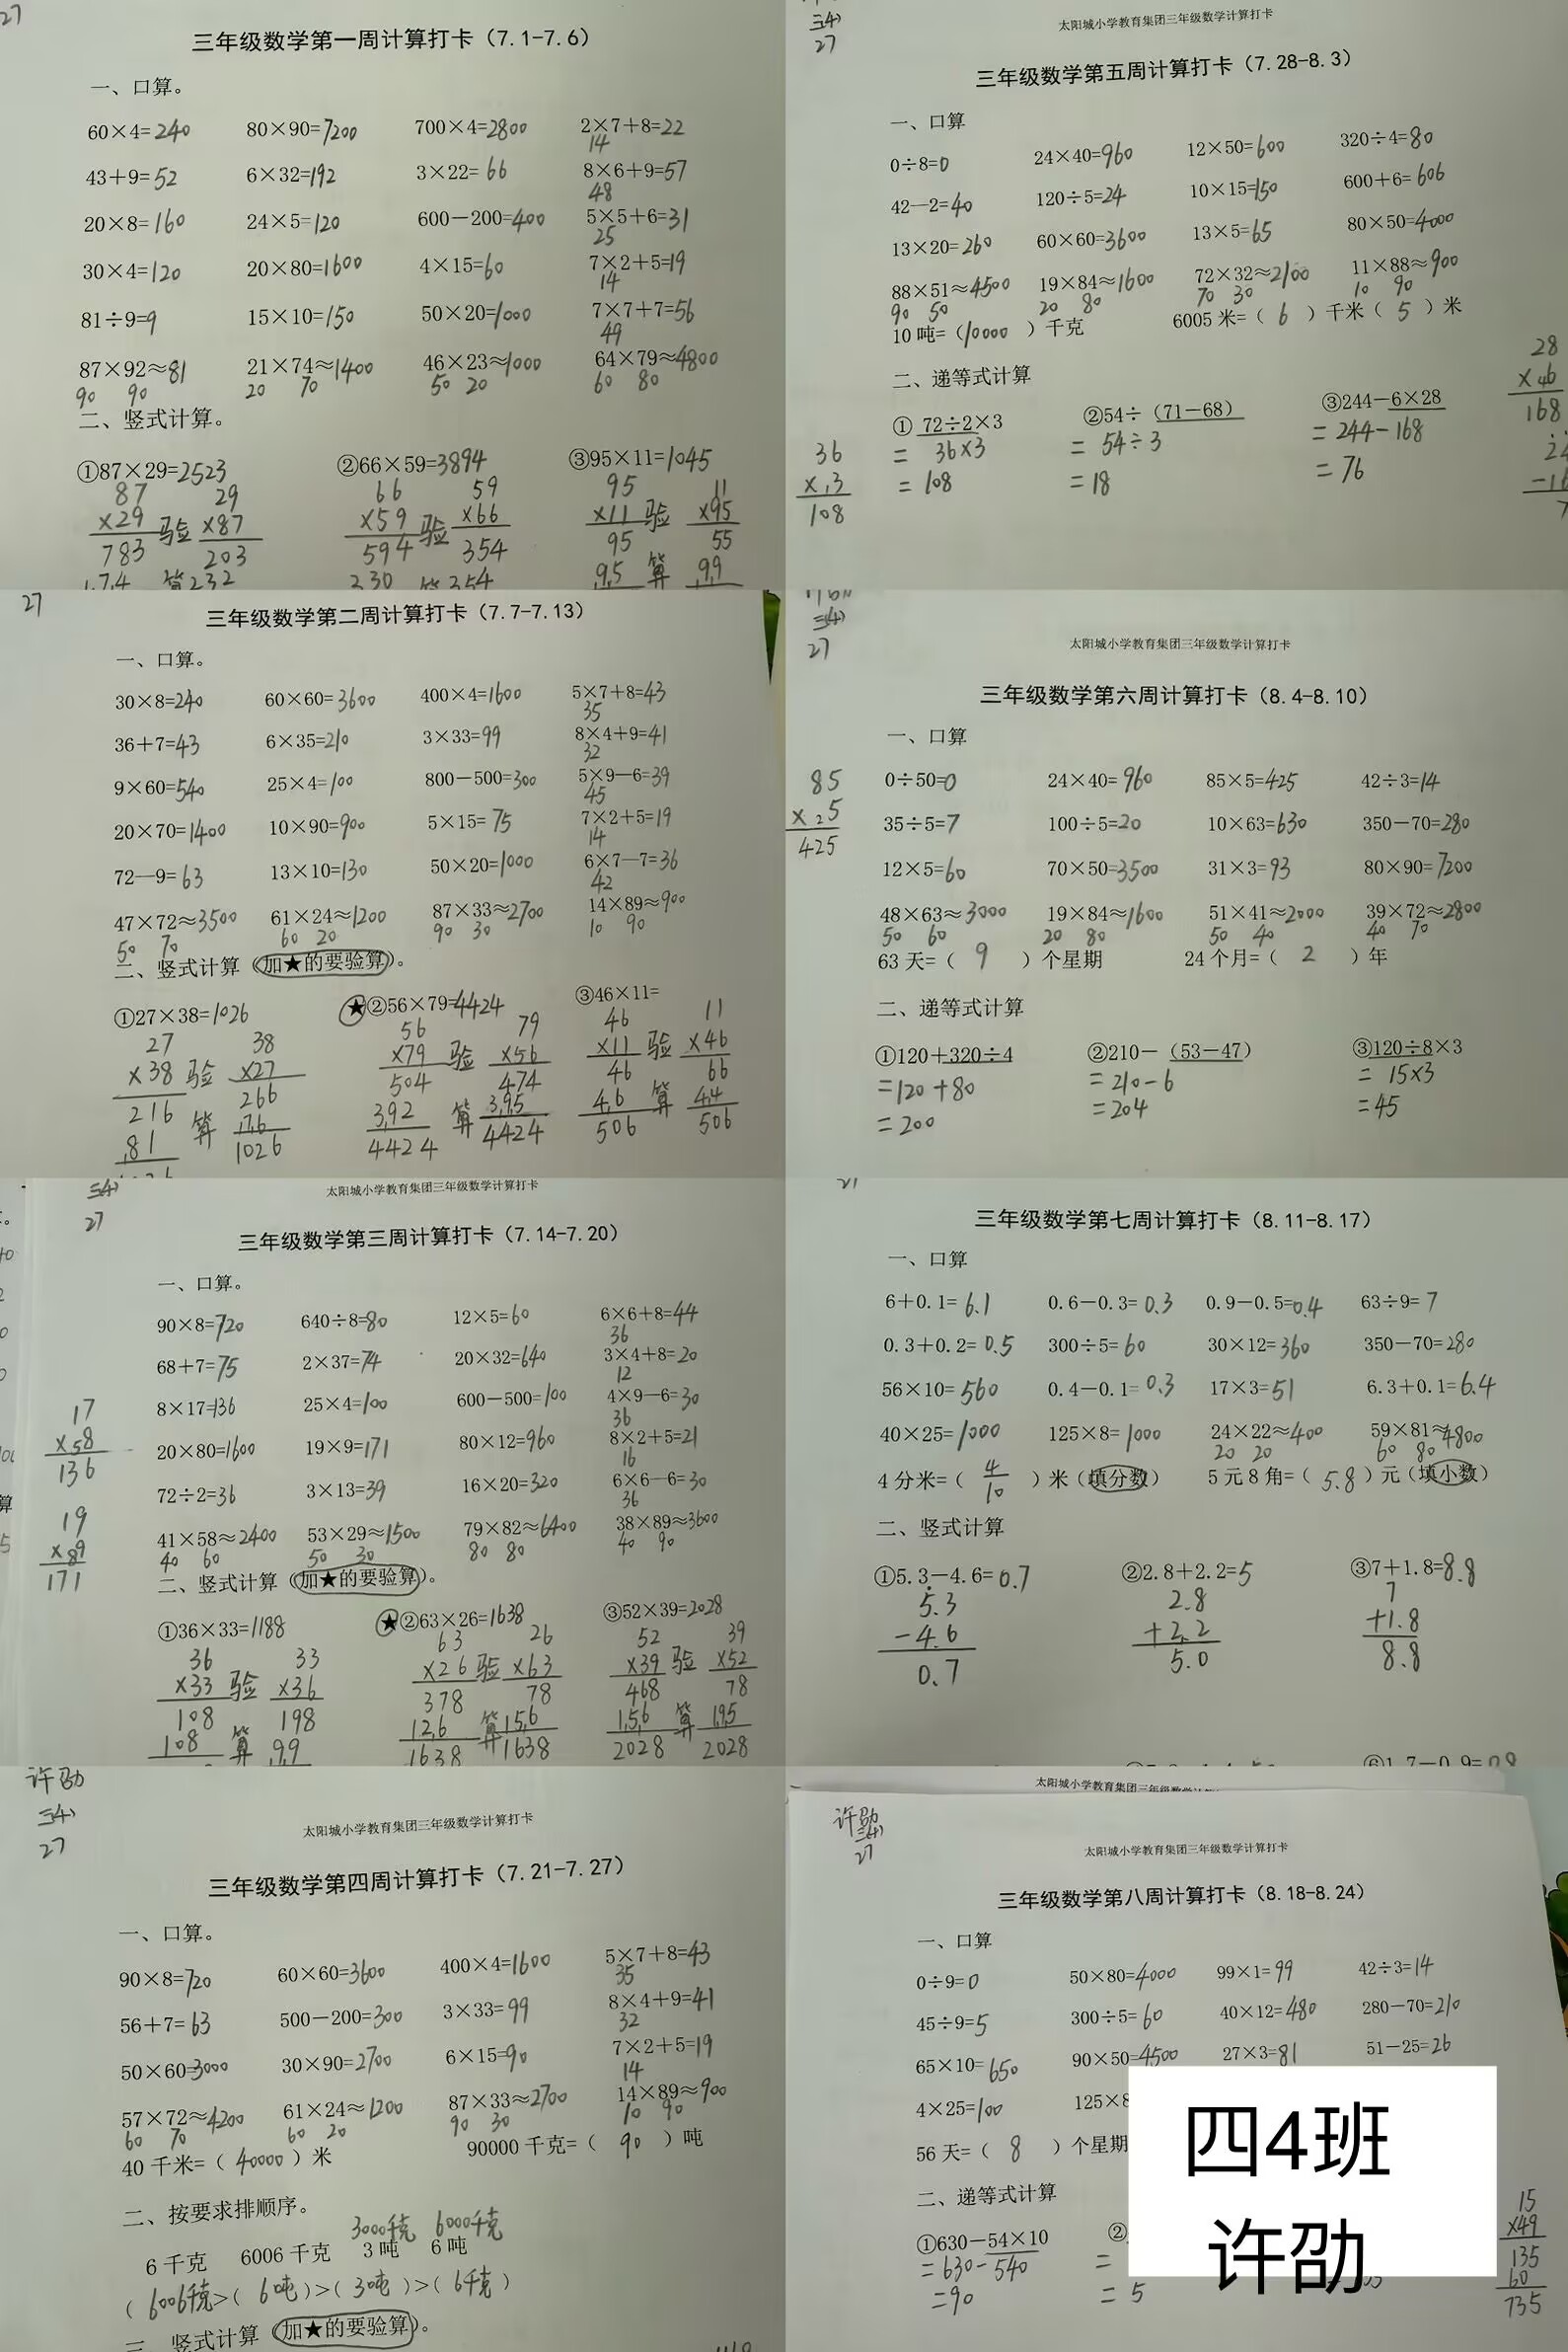 27
三年级数学第一周计算打卡（7.1-7.6）
一、口算。
60×4=240 80×90=7200 700×4=2800 2×7+8=22
14
43+9=52 6×32=192 3×22=66 8×6+9=57
48
20×8=160 24×5=120 600－200=400 5×5+6=31
25
30×4=120 20×80=1600 4×15=60 7×2+5=19
14
81÷9=9 15×10=150 50×20=1000 7×7+7=56
49
87×92≈81 21×74≈1400 46×23≈1000 64×79≈4800
90 90 20 70 50 20 60 80
二、竖式计算。
①87×29=2523 ②66×59=3894 ③95×11=1045
87 29 66 59 95 11
×29 验 ×87 ×59 验 ×66 ×11 验 ×95
783 203 594 354 95 55
174 算 232 330 算 354 95 算 99
27
三年级数学第二周计算打卡（7.7-7.13）
一、口算。
30×8=240 60×60=3600 400×4=1600 5×7+8=43
35
36+7=43 6×35=210 3×33=99 8×4+9=41
32
9×60=540 25×4=100 800－500=300 5×9－6=39
45
20×70=1400 10×90=900 5×15=75 7×2+5=19
14
72－9=63 13×10=130 50×20=1000 6×7－7=36
42
47×72≈3500 61×24≈1200 87×33≈2700 14×89≈900
50 70 60 20 90 30 10 90
二、竖式计算（加★的要验算）。
①27×38=1026 ★②56×79=4424 ③46×11=
27 38 56 79 46 11
×38 验 ×27 ×79 验 ×56 ×11 验 ×46
216 266 504 474 46 66
81 算 76 392 算 395 46 算 44
1026 4424 4424 506 506
三(4)
27
太阳城小学教育集团三年级数学计算打卡
三年级数学第三周计算打卡（7.14-7.20）
一、口算。
90×8=720 640÷8=80 12×5=60 6×6+8=44
36
68+7=75 2×37=74 20×32=640 3×4+8=20
12
8×17=136 25×4=100 600－500=100 4×9－6=30
36
20×80=1600 19×9=171 80×12=960 8×2+5=21
16
72÷2=36 3×13=39 16×20=320 6×6－6=30
36
41×58≈2400 53×29≈1500 79×82≈6400 38×89≈3600
40 60 50 30 80 80 40 90
17
×58
136
19
×89
171
二、竖式计算（加★的要验算）。
①36×33=1188 ★②63×26=1638 ③52×39=2028
36 33 63 26 52 39
×33 验 ×36 ×26 验 ×63 ×39 验 ×52
108 198 378 78 468 78
108 算 99 126 算 156 156 算 195
1638 1638 2028 2028
许劭
三(4)
27
太阳城小学教育集团三年级数学计算打卡
三年级数学第四周计算打卡（7.21-7.27）
一、口算。
90×8=720 60×60=3600 400×4=1600 5×7+8=43
35
56+7=63 500－200=300 3×33=99 8×4+9=41
32
50×60=3000 30×90=2700 6×15=90 7×2+5=19
14
57×72≈4200 61×24≈1200 87×33≈2700 14×89≈900
60 70 60 20 90 30 10 90
40 千米=（40000）米 90000 千克=（90）吨
二、按要求排顺序。
3000千克 6000千克
6 千克 6006 千克 3 吨 6 吨
（6006千克）>（6吨）>（3吨）>（6千克）
三、竖式计算（加★的要验算）。
三(4)
27
太阳城小学教育集团三年级数学计算打卡
三年级数学第五周计算打卡（7.28-8.3）
一、口算
0÷8=0 24×40=960 12×50=600 320÷4=80
42－2=40 120÷5=24 10×15=150 600+6=606
13×20=260 60×60=3600 13×5=65 80×50=4000
88×51≈4500 19×84≈1600 72×32≈2100 11×88≈900
90 50 20 80 70 30 10 90
10 吨=（10000）千克 6005 米=（6）千米（5）米
二、递等式计算
① 72÷2×3 ②54÷（71－68） ③244－6×28
= 36×3 = 54÷3 = 244-168
= 108 = 18 = 76
36
×3
108
28
×46
168
三(4)
27
太阳城小学教育集团三年级数学计算打卡
三年级数学第六周计算打卡（8.4-8.10）
一、口算
0÷50=0 24×40=960 85×5=425 42÷3=14
35÷5=7 100÷5=20 10×63=630 350－70=280
12×5=60 70×50=3500 31×3=93 80×90=7200
48×63≈3000 19×84≈1600 51×41≈2000 39×72≈2800
50 60 20 80 50 40 40 70
85
×25
425
63 天=（9）个星期 24 个月=（2）年
二、递等式计算
①120+320÷4 ②210－（53－47） ③120÷8×3
=120+80 =210-6 = 15×3
=200 =204 =45
三年级数学第七周计算打卡（8.11-8.17）
一、口算
6+0.1=6.1 0.6－0.3=0.3 0.9－0.5=0.4 63÷9=7
0.3+0.2=0.5 300÷5=60 30×12=360 350－70=280
56×10=560 0.4－0.1=0.3 17×3=51 6.3+0.1=6.4
40×25=1000 125×8=1000 24×22≈400 59×81≈4800
20 20 60 80
4 分米=（4/10）米（填分数） 5 元 8 角=（5.8）元（填小数）
二、竖式计算
①5.3－4.6=0.7 ②2.8+2.2=5 ③7+1.8=8.8
5.3 2.8 7
-4.6 +2.2 +1.8
0.7 5.0 8.8
⑥1.7－0.9=0.8
太阳城小学教育集团三年级数学计算打卡
许劭
三(4)
27
太阳城小学教育集团三年级数学计算打卡
三年级数学第八周计算打卡（8.18-8.24）
一、口算
0÷9=0 50×80=4000 99×1=99 42÷3=14
45÷9=5 300÷5=60 40×12=480 280－70=210
65×10=650 90×50=4500 27×3=81 51－25=26
4×25=100 125×8
56 天=（8）个星期
二、递等式计算
①630－54×10 ②
=630-540 =
=90 = 5
15
×49
135
60
735
四4班
许劭